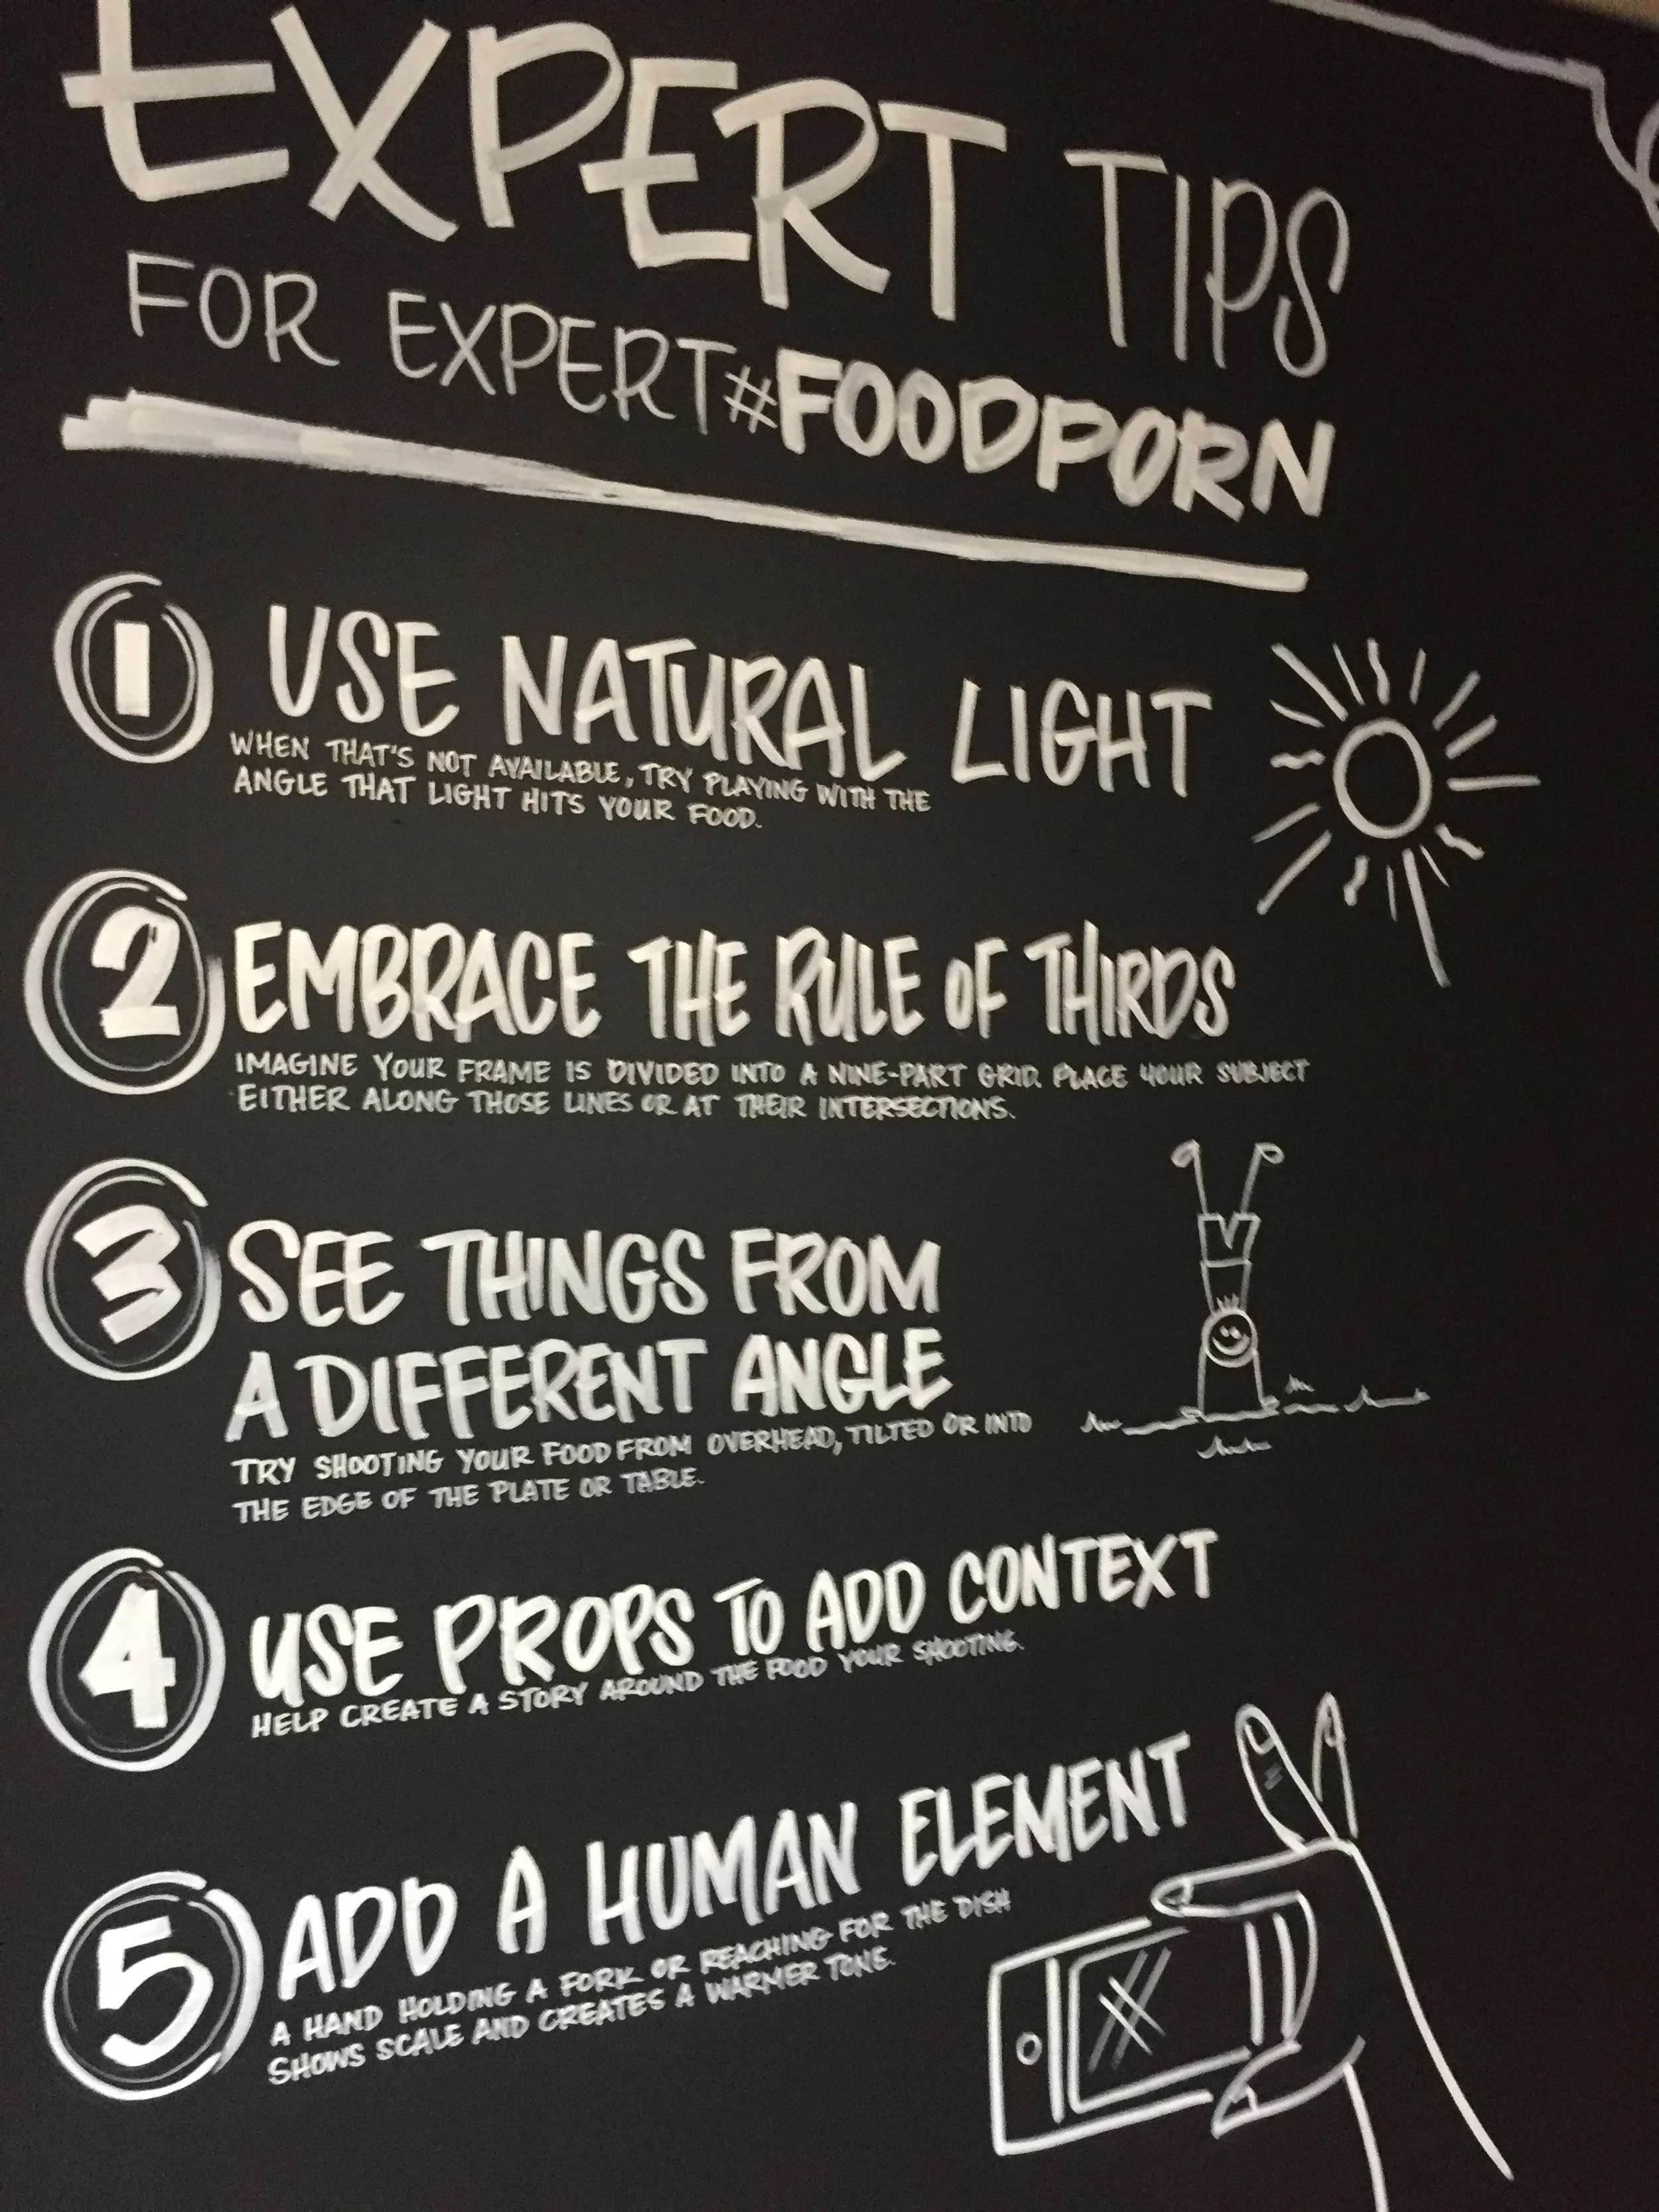 EXPERT TIPS
FOR EXPERT #FOODPORN
1 USE NATURAL LIGHT
WHEN THAT'S NOT AVAILABLE, TRY PLAYING WITH THE
ANGLE THAT LIGHT HITS YOUR FOOD.
2 EMBRACE THE RULE OF THIRDS
IMAGINE YOUR FRAME IS DIVIDED INTO A NINE-PART GRID. PLACE YOUR SUBJECT
EITHER ALONG THOSE LINES OR AT THEIR INTERSECTIONS.
3 SEE THINGS FROM
A DIFFERENT ANGLE
TRY SHOOTING YOUR FOOD FROM OVERHEAD, TILTED OR INTO
THE EDGE OF THE PLATE OR TABLE.
4 USE PROPS TO ADD CONTEXT
HELP CREATE A STORY AROUND THE FOOD YOUR SHOOTING.
5 ADD A HUMAN ELEMENT
A HAND HOLDING A FORK OR REACHING FOR THE DISH
SHOWS SCALE AND CREATES A WARMER TONE.